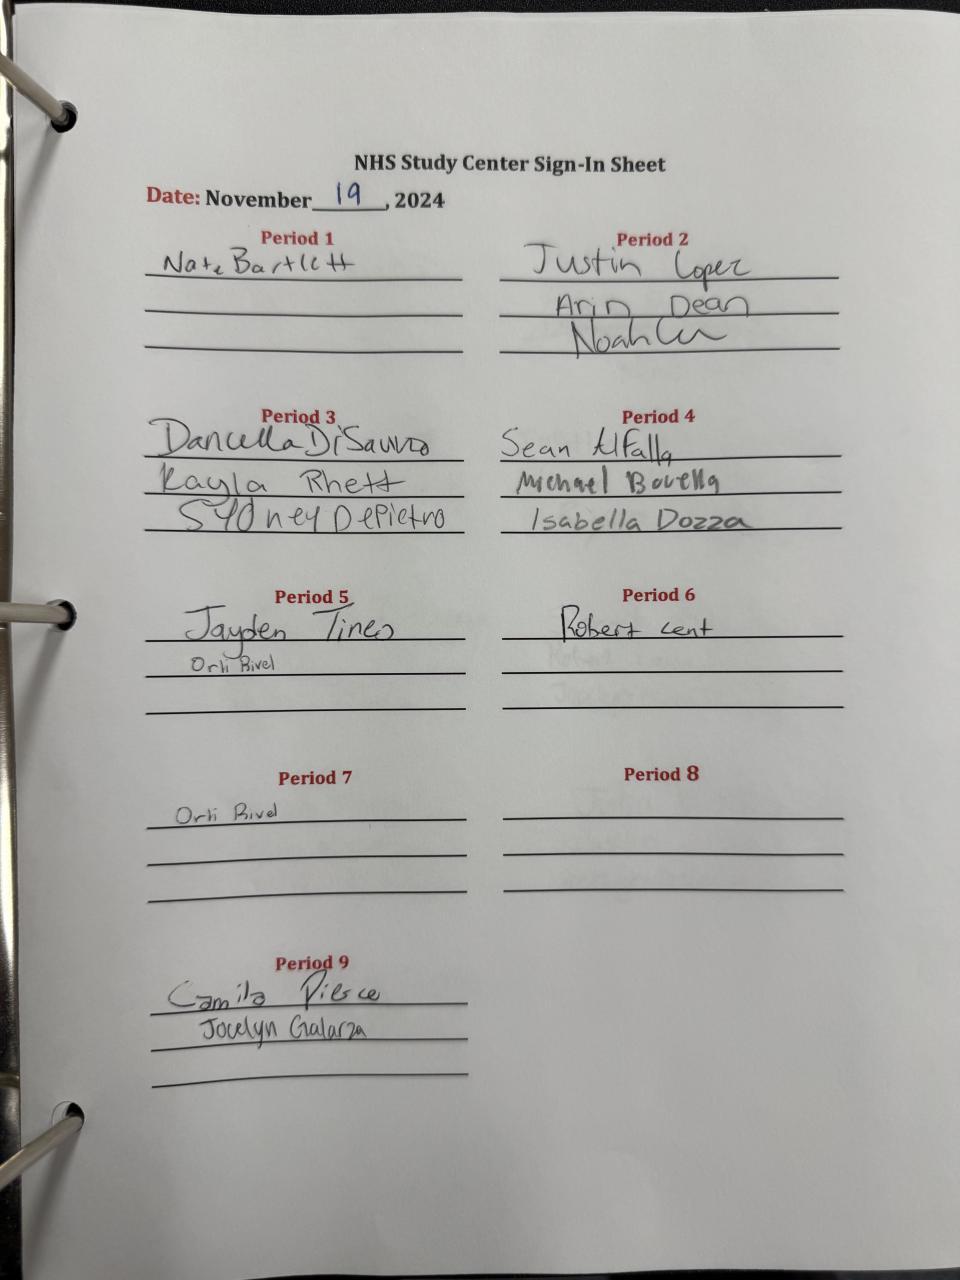 NHS Study Center Sign-In Sheet
Date: November 19, 2024
Period 1
Nate Bartlett
Period 2
Justin Lopez
Arin Dean
Noah
Period 3
DiSauro
Kayla Rhett
Sydney DePietro
Period 4
Sean Alfalla
Michael Bovella
Isabella Dozza
Period 5
Jayden Tineo
Orli Rivel
Period 6
Robert Cent
Period 7
Orli Rivel
Period 8
Period 9
Camila Pierce
Jocelyn Galarza